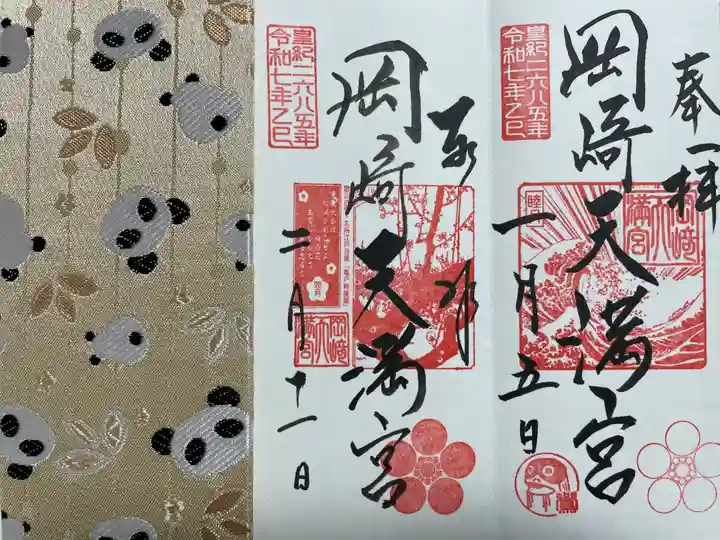 奉拝
皇紀二六八五年
令和七年乙巳
岡崎天満宮
一月五日
睦月
岡崎天満宮
皇紀二六八五年
令和七年乙巳
奉拝
岡崎天満宮
二月十一日
岡崎天満宮